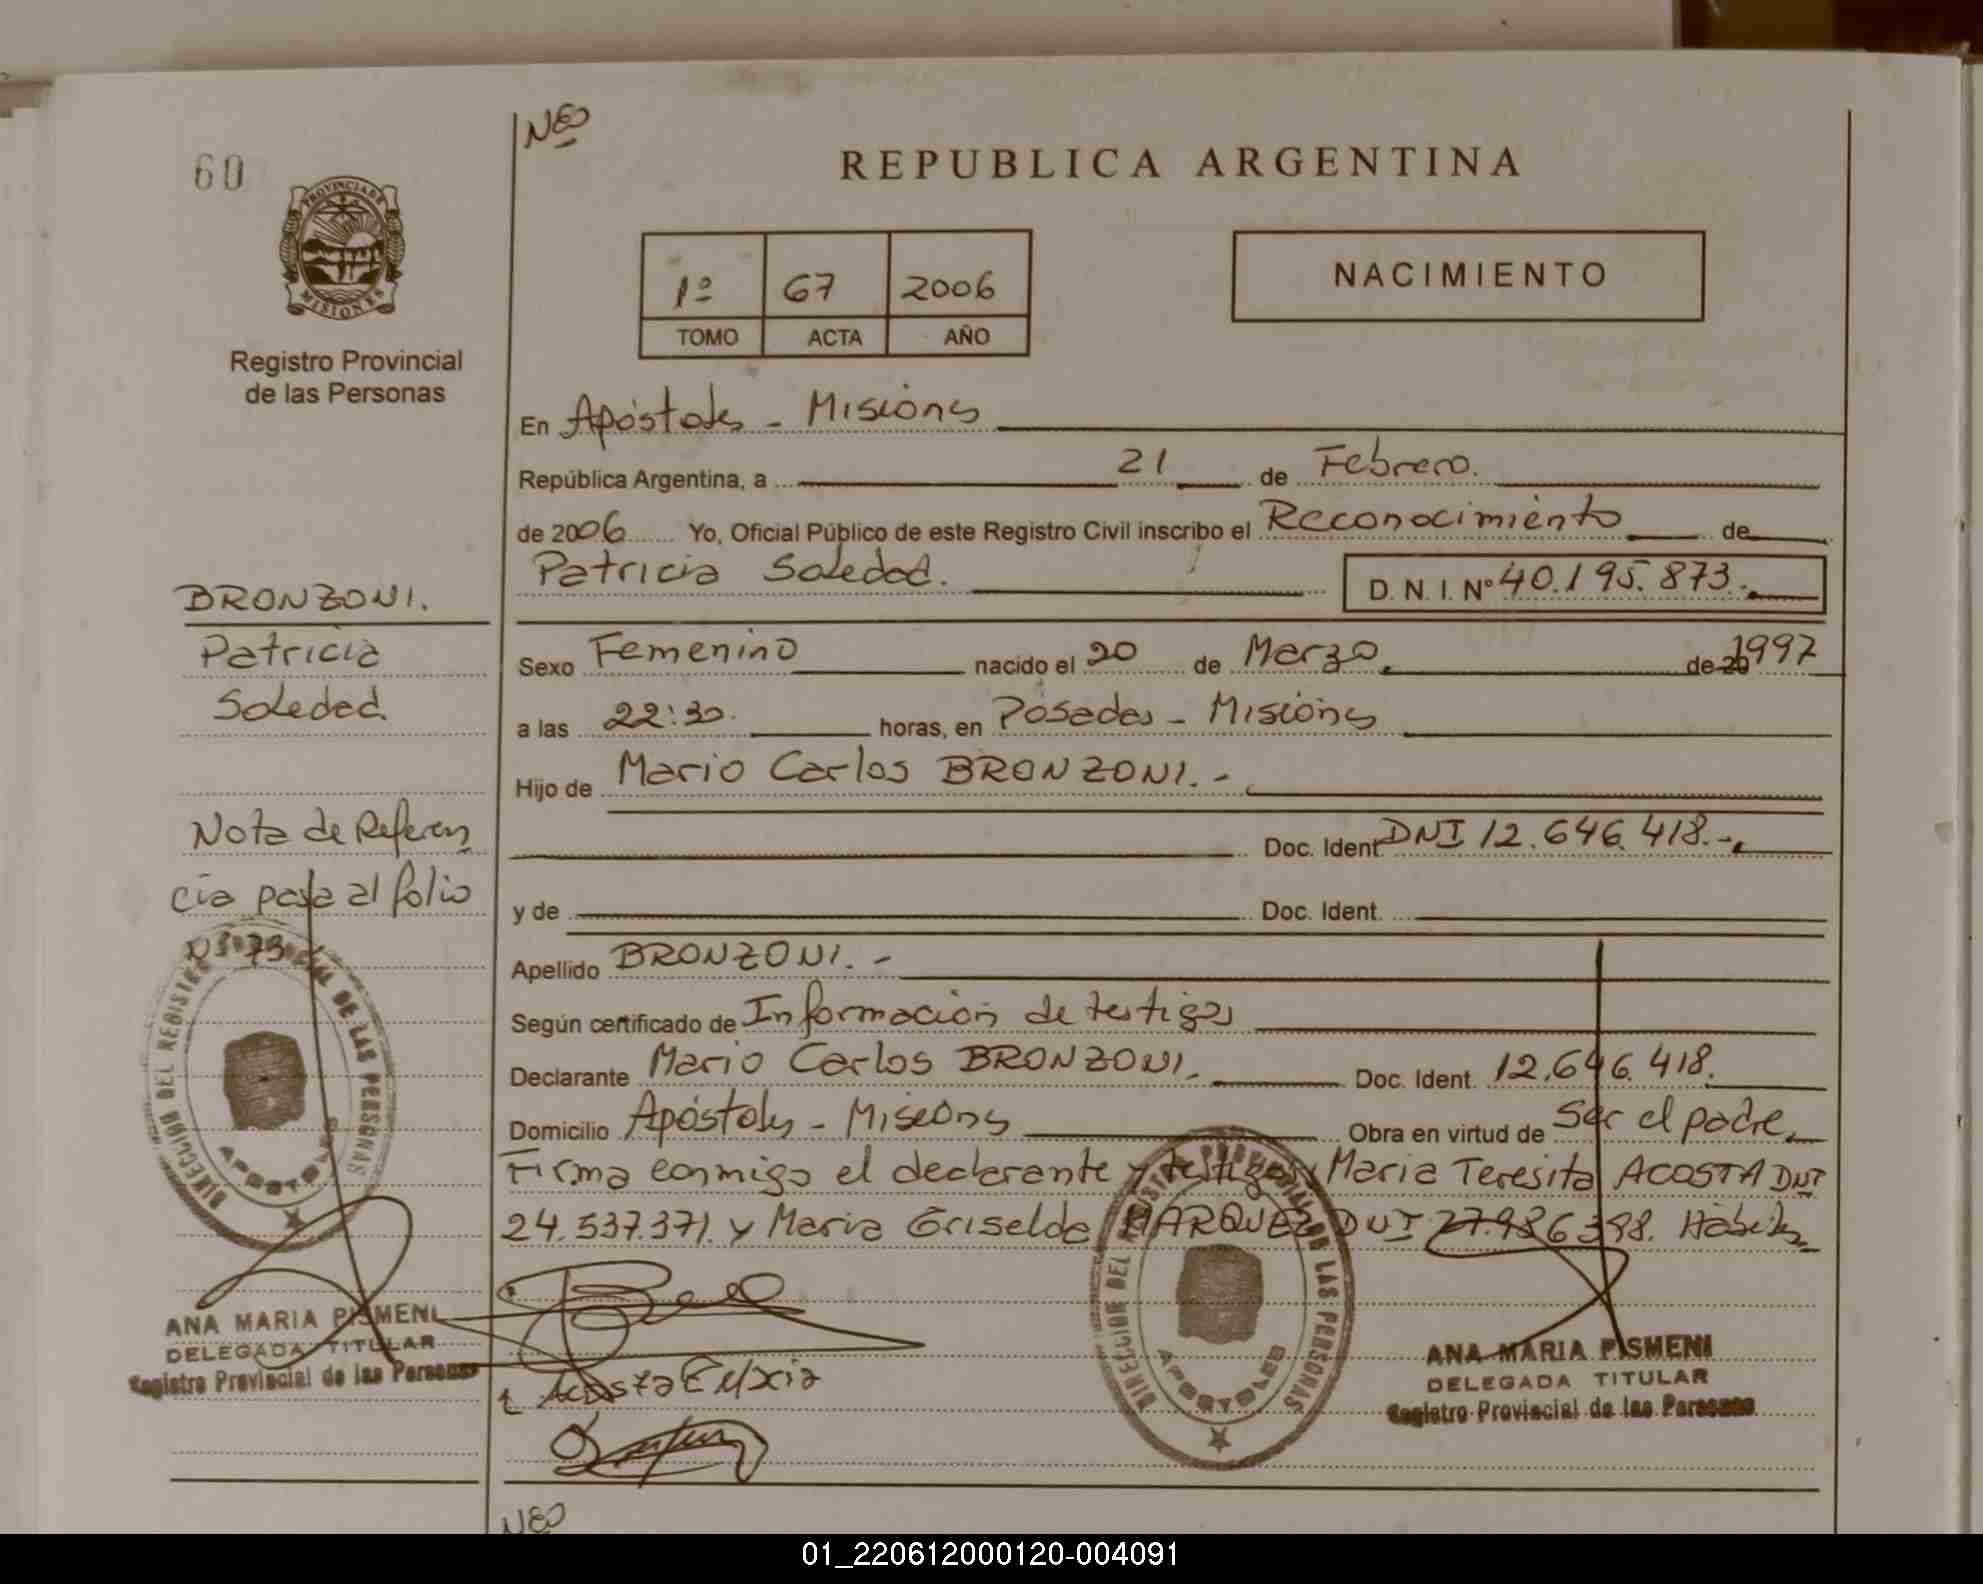 NEO
60
REPUBLICA ARGENTINA
PROVINCIA DE
MISIONES
Registro Provincial
de las Personas
1º 67 2006
TOMO ACTA AÑO
NACIMIENTO
En Apóstoles - Misiones
República Argentina, a 21 de Febrero.
de 2006 Yo, Oficial Público de este Registro Civil inscribo el Reconocimiento de
Patricia Soledad. D. N. I. Nº 40.195.873.-
Sexo Femenino nacido el 20 de Marzo de 20 1997
a las 22:30. horas, en Posadas - Misiones
Hijo de Mario Carlos BRONZONI.-
Doc. Ident. DNI 12.646.418.-
y de Doc. Ident.
Apellido BRONZONI.-
Según certificado de Información de testigos
Declarante Mario Carlos BRONZONI.- Doc. Ident. 12.646.418.
Domicilio Apóstoles - Misiones Obra en virtud de Ser el padre
Firma conmigo el declarante y testigos Maria Teresita ACOSTA DNI
24.537.371. y Maria Griselda MARQUEZ DNI 27.986398. Hábiles
BRONZONI.
Patricia
Soledad
Nota de Referen
cia pasa al folio
Nº 73
DIRECCION DEL REGISTRO PROVINCIAL DE LAS PERSONAS
APOSTOLES
ANA MARIA PISMENI
DELEGADA TITULAR
Registro Provincial de las Personas
Acosta
DIRECCION DEL REGISTRO PROVINCIAL DE LAS PERSONAS
APOSTOLES
ANA MARIA PISMENI
DELEGADA TITULAR
Registro Provincial de las Personas
NEO
01_220612000120-004091